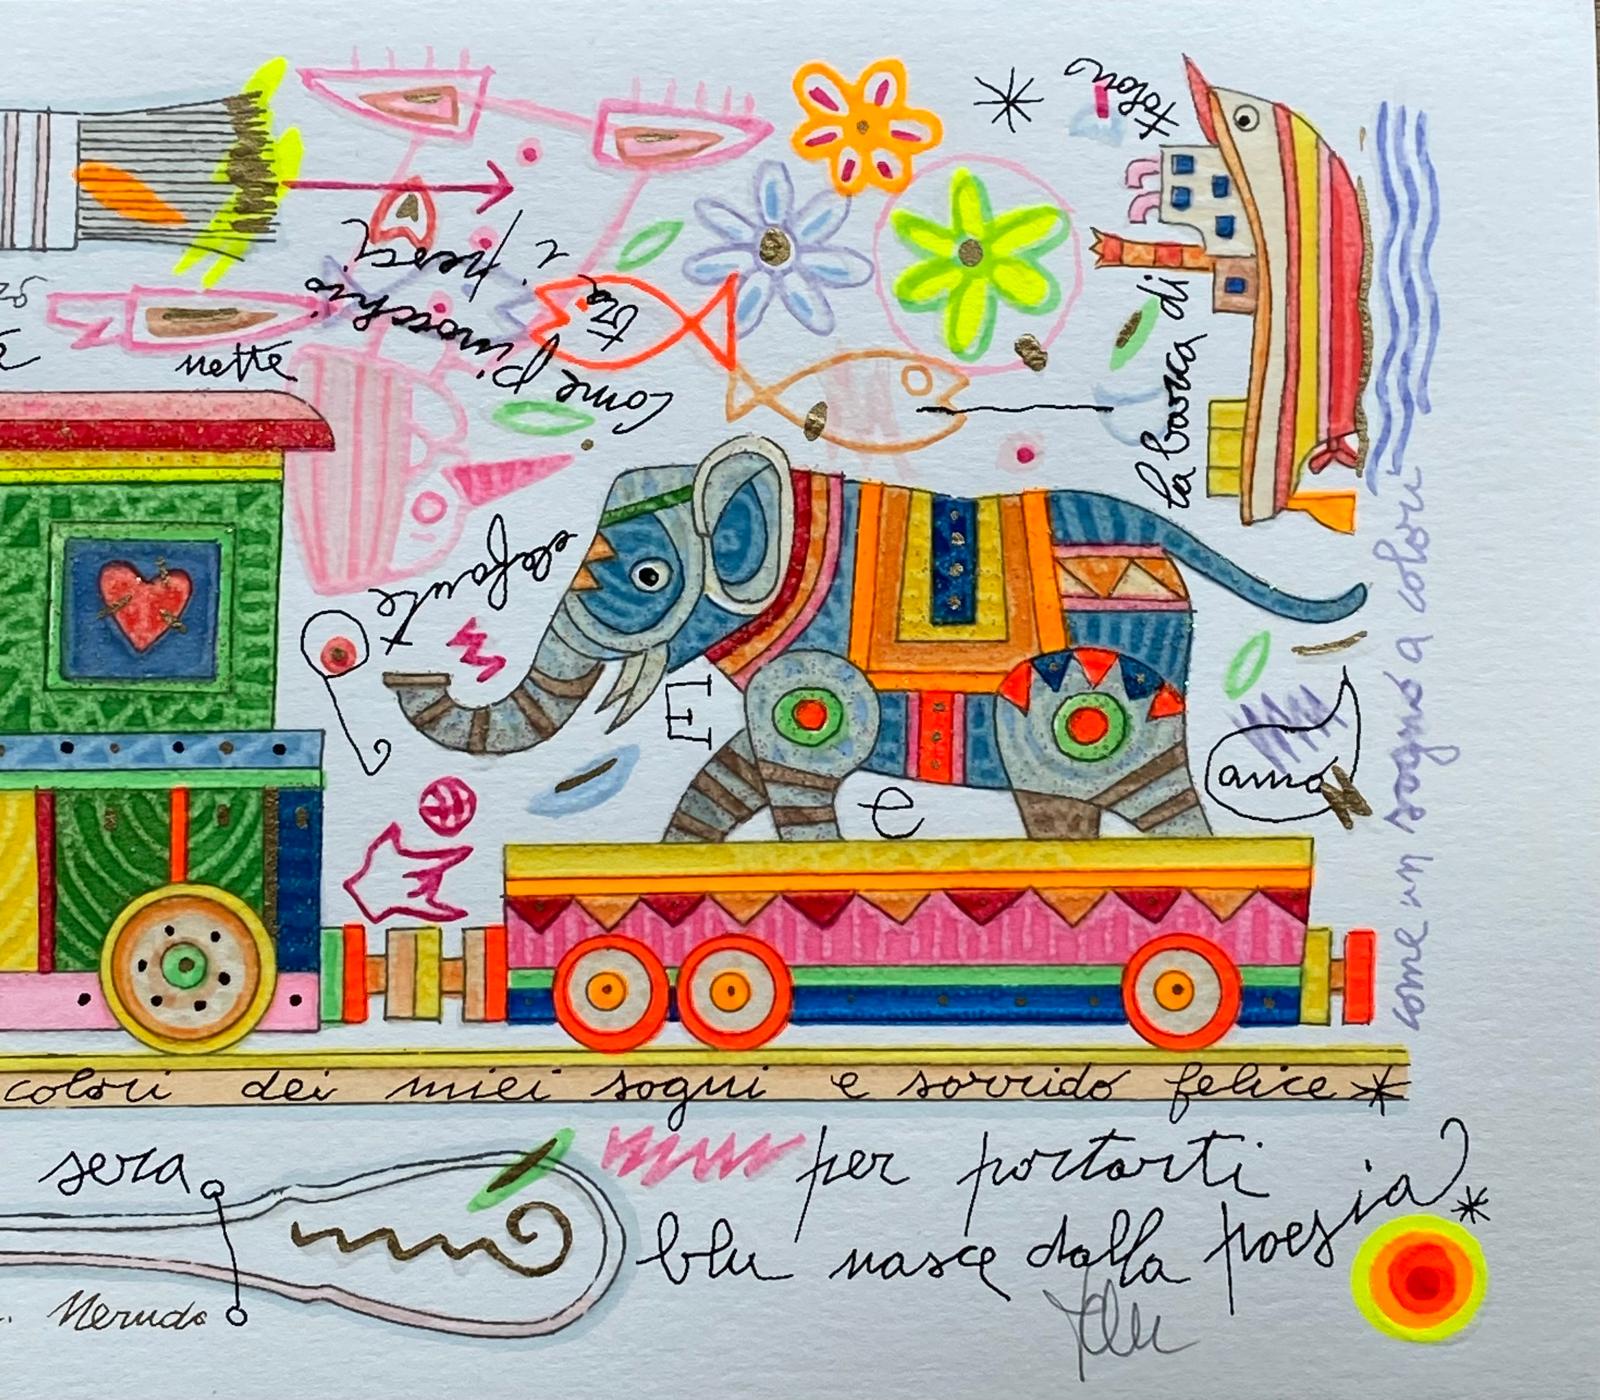 Folon
la barca di
come Pinocchio
tra i pesci
nette
elefante
E
e
amo
come un sogno a colori
colori dei miei sogni e sorrido felice *
sera
per portarti
blu nasce dalla poesia *
Neruda